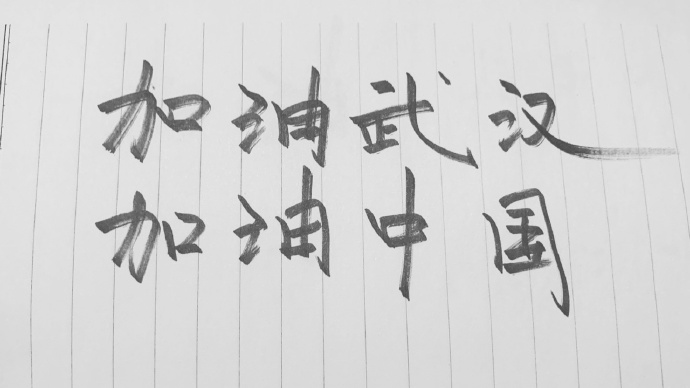 加油武汉
加油中国